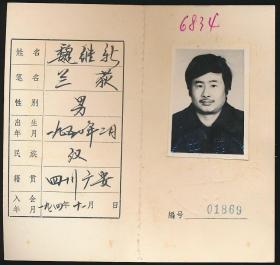 6834
姓名 魏继新
笔名 兰荻
性别 男
出生年月 一九五〇年二月
民族 汉
籍贯 四川广安
入会年月 一九八四年十一月 日
编号 01869